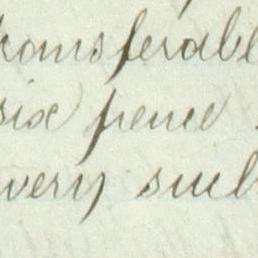 transferable
six pence
very such